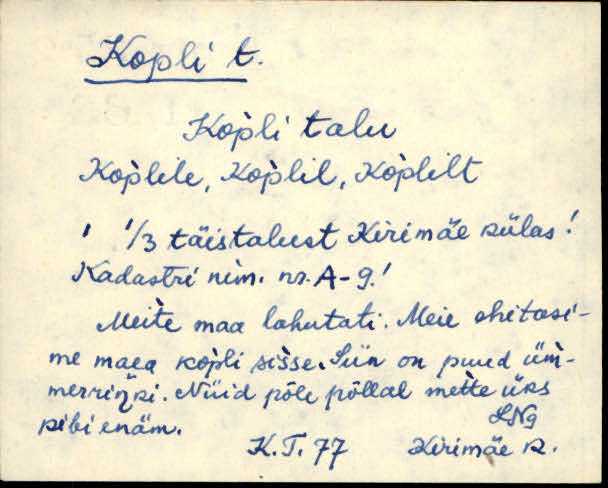 Kopli t.
Kop̀li talu
Kop̀lile, Kop̀lil, Kop̀lilt
' 1/3 täistalust Kirimäe külas!
Kadastri nim. nr. A-9.'
Meit̀e maa lahutati. Meie ehitasi-
me maea kop̀li sisse. Siin on puud üm̀-
merriŋ̀ki. Nüid põle põllal met̀te üks
kibi enäm.
LNg
K.T. 77 Kirimäe k.